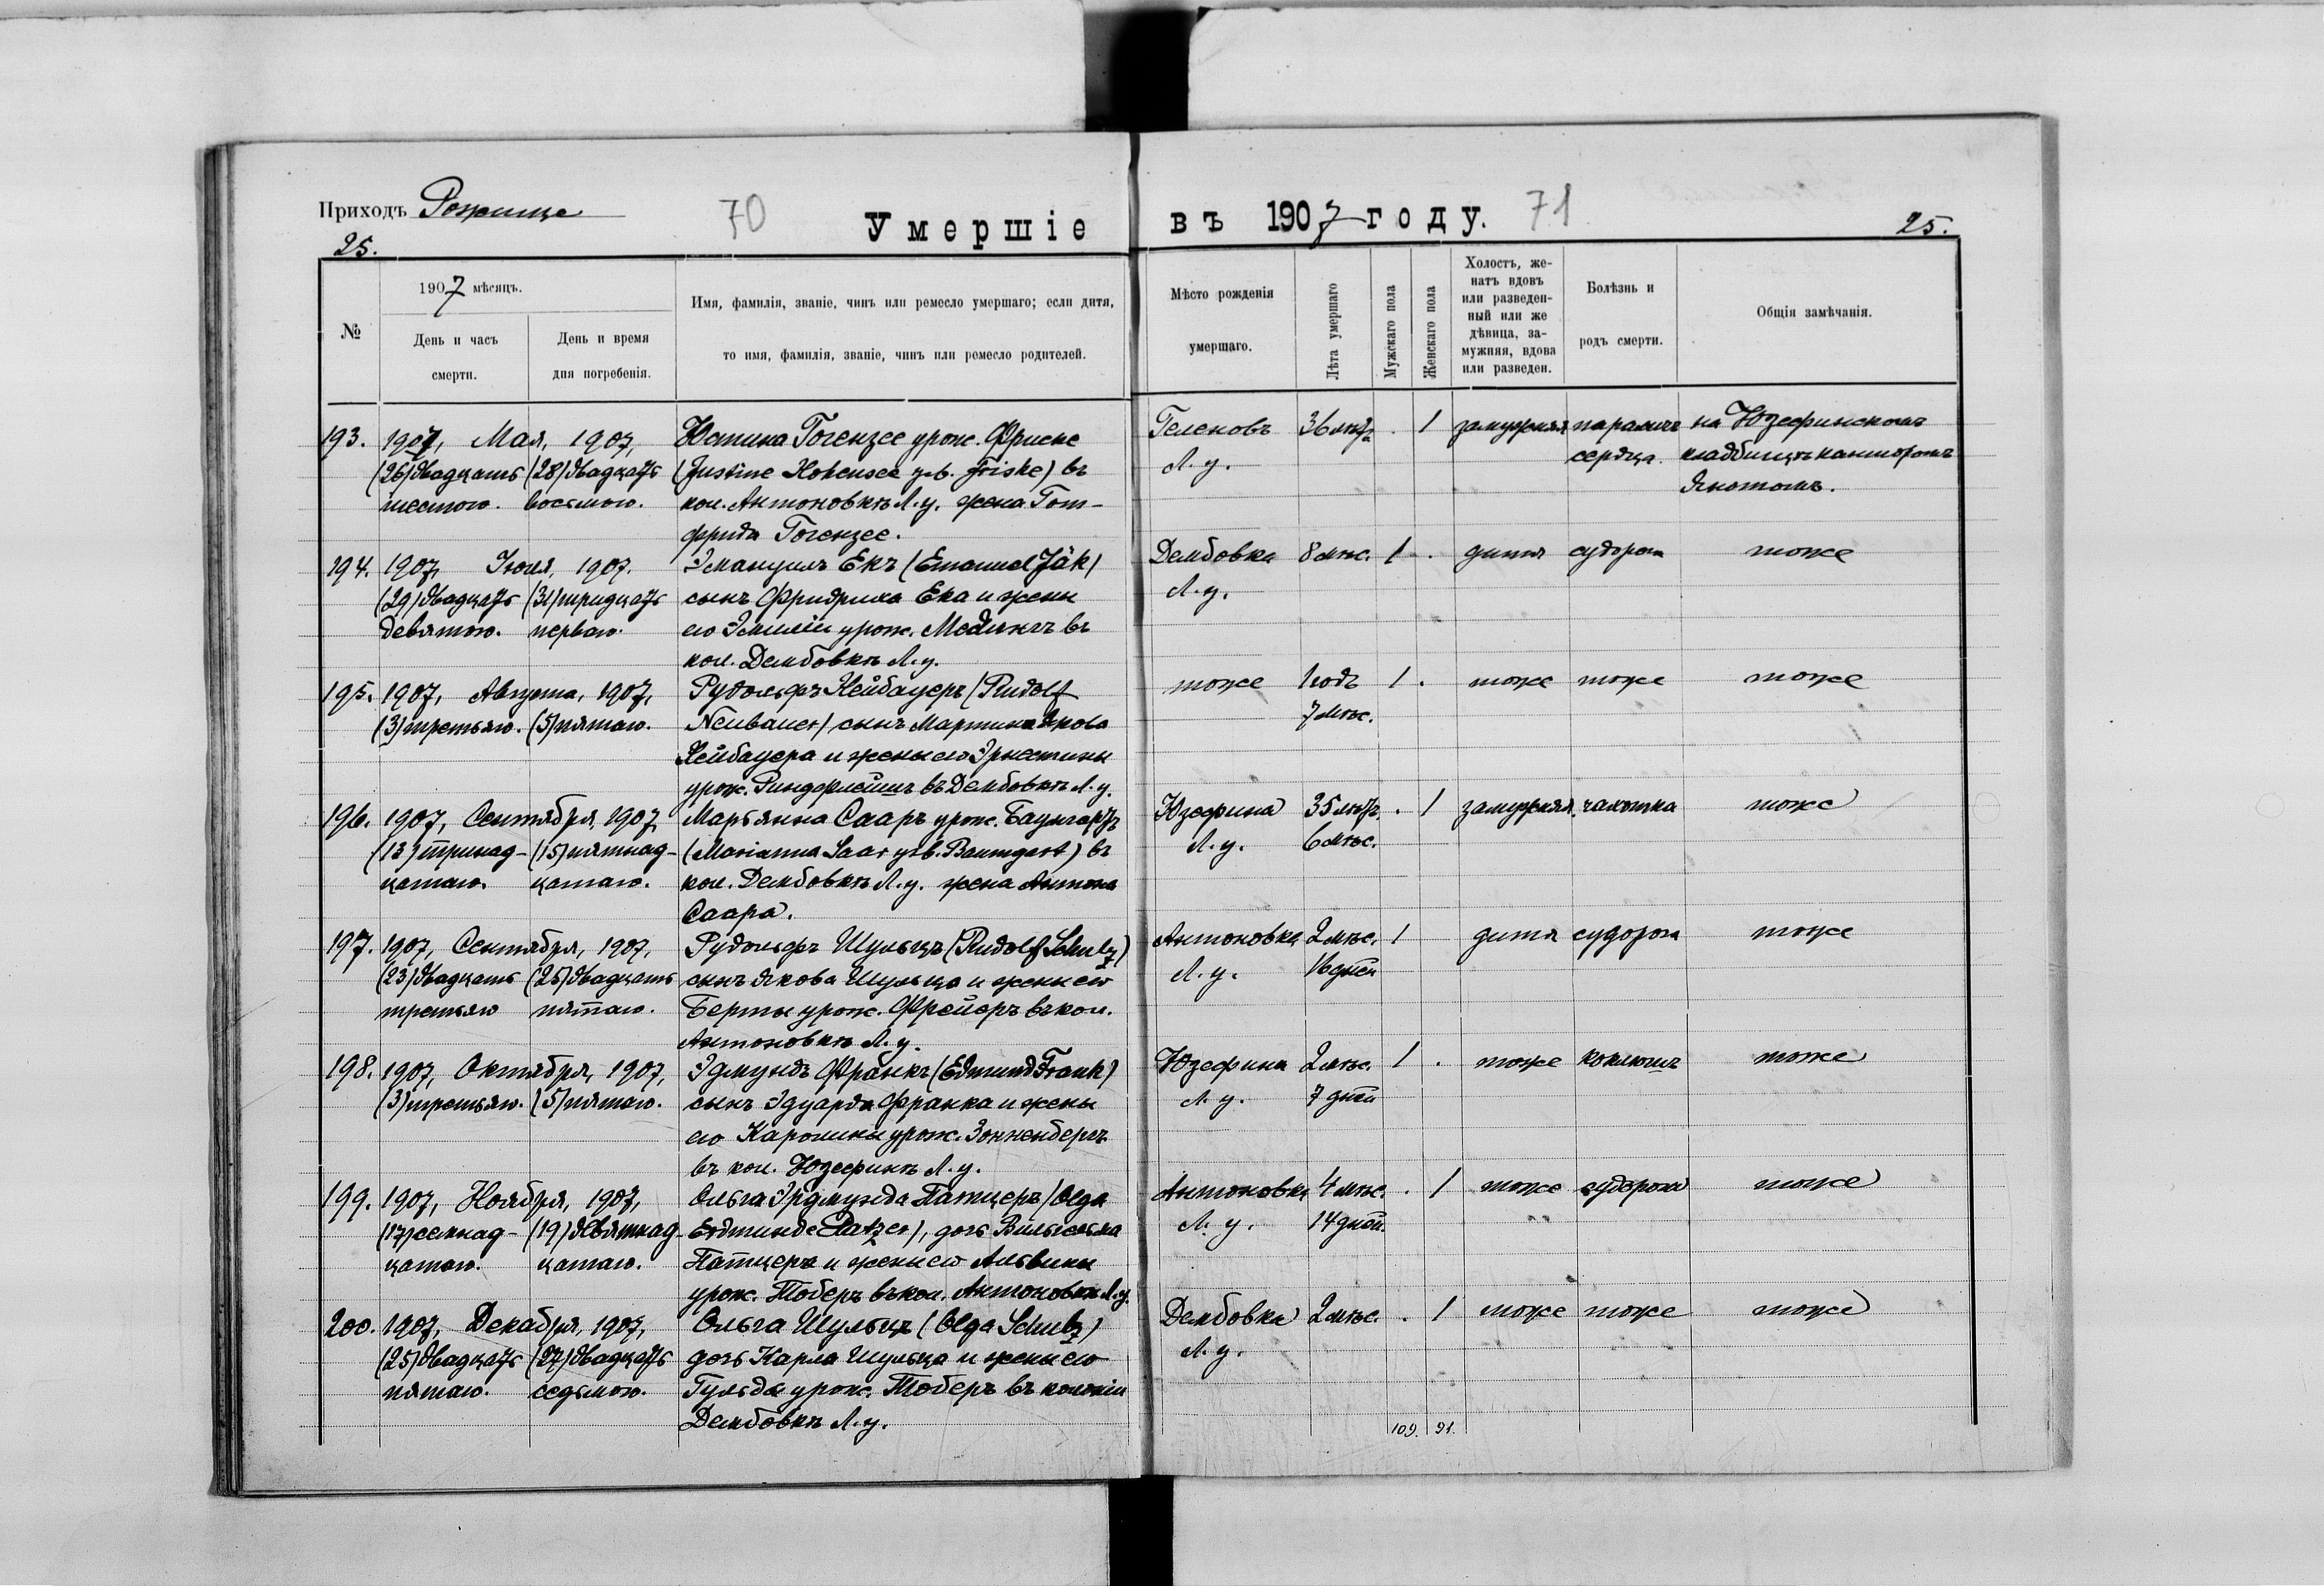 Приходъ Рожище
70
Умершіе
въ 1907 году.
71
25.
25.
№
1907 мѣсяцъ.
День и часъ
смерти.
День и время
дня погребенія.
Имя, фамилія, званіе, чинъ или ремесло умершаго; если дитя,
то имя, фамилія, званіе, чинъ или ремесло родителей.
Мѣсто рожденія
умершаго.
Лѣта умершаго
Мужскаго пола
Женскаго пола
Холостъ, же-
натъ вдовъ
или разведен-
ный или же
дѣвица, за-
мужняя, вдова
или разведен.
Болѣзнь и
родъ смерти.
Общія замѣчанія.
193. 1907, Мая, 1907, Юстина Гогензее урож. Фриске Геленовъ 36 лѣтъ . 1 замужняя параличъ на Юзефинскомъ
(26) двадцать (28) двадцать (Justine Hohensee geb. Friske) въ Л. у. сердца. кладбищѣ канторомъ
шестого. восьмого. кол. Антоновкѣ Л. у. жена Гот-
фрида Гогензее.
194. 1907, Іюля, 1907. Эмануилъ Екъ (Emanuel Jäk) Дембовка 8 мѣс. 1 . дитя судорога тоже
(29) двадцать (31) тридцать сынъ Фридриха Ека и жены Л. у.
девятого. перваго. его Эмиліи урож. въ
кол. Дембовкѣ Л. у.
195. 1907, Августа, 1907, Рудольфъ Нейбауеръ (Rudolf тоже 1 годъ 1 . тоже тоже тоже
(3) третьяго. (5) пятаго. Neubauer) сынъ Мартина Якова 7 мѣс.
Нейбауера и жены его Эрнестины
урож. Риндфлейшъ въ Дембовкѣ Л. у.
196. 1907, Сентября, 1907, Марьянна Сааръ урож. Баумгартъ Юзефина 35 лѣтъ . 1 замужняя чахотка тоже
(13) тринад- (15) пятнад- (Marianna Saar geb. Baumgart) въ Л. у. 6 мѣс.
цатаго. цатаго. кол. Дембовкѣ Л. у. жена Антона
Саара.
197. 1907, Сентября, 1907, Рудольфъ Шульцъ (Rudolf Schulz) Антоновка 2 мѣс. 1 дитя судорога тоже
(23) двадцать (25) двадцать сынъ Якова Шульца и жены его Л. у. 16 дней
третьяго пятаго. Берты урож. Фрейеръ въ кол.
Антоновкѣ Л. у.
198. 1907, Октября, 1907, Эдмундъ Франкъ (Edmund Frank) Юзефина 2 мѣс. 1 . тоже коклюшъ тоже
(3) третьяго. (5) пятаго. сынъ Эдуарда Франка и жены Л. у. 7 дней
его Каролины урож. Зонненбергъ
въ кол. Юзефинѣ Л. у.
199. 1907, Ноября, 1907, Ольга Эрдмунда Патцеръ (Olga Антоновка 4 мѣс. . 1 тоже судорога тоже
(17) семнад- (19) девятнад- Erdmunde Patzer), дочь Вильгельма Л. у. 14 дней.
цатаго. цатаго. Патцера и жены его Альвины
урож. Тоберъ въ кол. Антоновкѣ Л. у.
200. 1907, Декабря, 1907, Ольга Шульцъ (Olga Schulz) Дембовка 2 мѣс. . 1 тоже тоже тоже
(25) двадцать (27) двадцать дочь Карла Шульца и жены его Л. у.
пятаго. седьмого. Гульды урож. Тоберъ въ колоніи
Дембовкѣ Л. у.
109. 91.